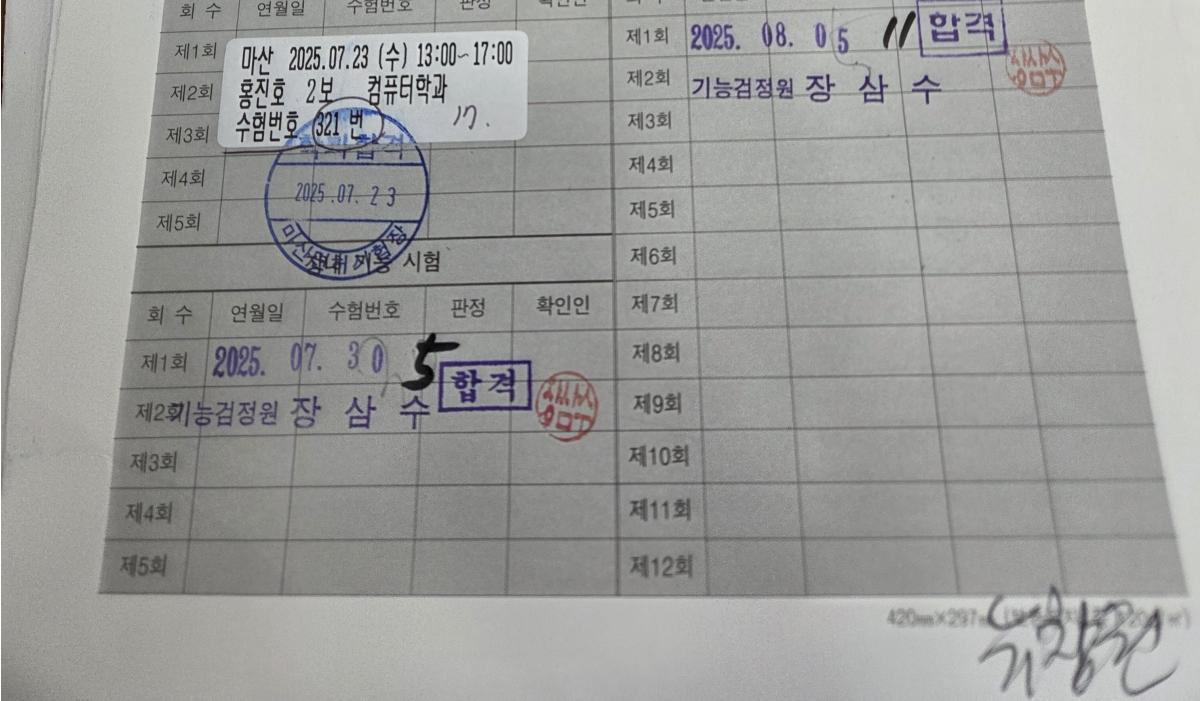 회 수 연월일 수험번호 판정 확인인
제1회
마산 2025.07.23 (수) 13:00~17:00
제2회
홍진호 2보 컴퓨터학과
제3회
수험번호 321 번 17.
학과합격
제4회
2025.07.23
제5회
장내기능 시험
회 수 연월일 수험번호 판정 확인인
제1회 2025. 07. 30 5 합격
제2회 기능검정원 장 삼 수
제3회
제4회
제5회
제1회 2025. 08. 05 11 합격
제2회 기능검정원 장 삼 수
제3회
제4회
제5회
제6회
제7회
제8회
제9회
제10회
제11회
제12회
420㎜×297㎜